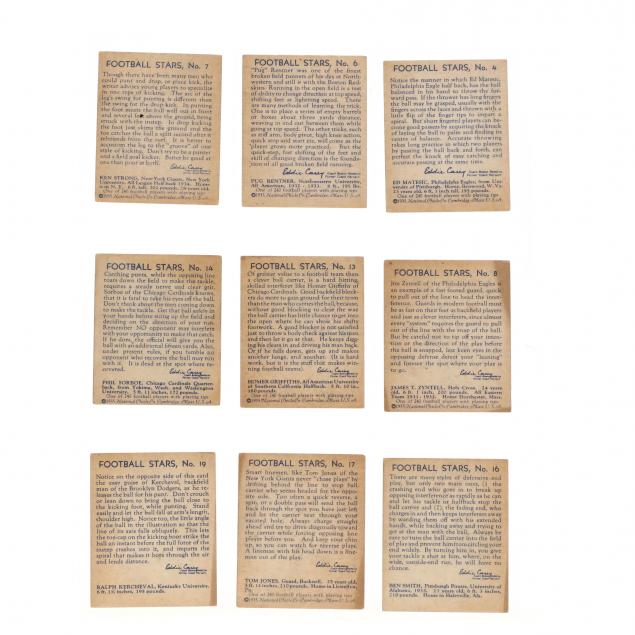 FOOTBALL STARS, No. 7
Though there have been many men who
could punt and drop, or place kick, the
writer advises young players to specialize
in one type of kicking. The arc of the
leg's swing for punting is different than
the swing for the drop kick. In punting
the foot meets the ball well out in front
and several feet above the ground, being
struck with the instep. In drop kicking
the foot just skims the ground and the
toe catches the ball a split second after it
rebounds from the turf. It is better to
accustom the leg to the "groove" of one
style of kicking. Don't try to be a punter
and a field goal kicker. Better be good at
one than poor at both.
Eddie Casey
KEN STRONG, New York Giants, New York
University. All League Half back 1934.
One of 240 football players with playing tips
©1935, National Chicle Co. Cambridge, Mass. U.S.A.
FOOTBALL STARS, No. 6
"Pug" Rentner was one of the finest
broken field runners of his day at North-
western, and still is with the Boston Red-
skins. Running in the open field is a test
of ability to change direction at top speed,
shifting feet at lightning speed. There
are many methods of learning the trick.
One is to place a series of empty barrels
or boxes about three yards distance,
weaving in and out between them while
going at top speed. The other tricks, such
as stiff arm, body pivot, high knee action,
quick stop and start etc, will come as the
player grows more practiced. But the
quick-step, fast shifting of the feet and
skill of changing direction is the founda-
tion of all good broken field running.
Eddie Casey
PUG RENTNER, Northwestern University,
All American, 1932 - 1933. 6 ft., 195 lbs.
One of 240 football players with playing tips
©1935, National Chicle Co. Cambridge, Mass. U.S.A.
FOOTBALL STARS, No. 4
Notice the manner in which Ed Matesic,
Philadelphia Eagle half back, has the ball
balanced in his hand before the for-
ward pass. If the thrower has long fingers
the ball may be grasped, usually with the
fingers across the laces and thrown with a
little flip of the finger tips to impart a
spiral. But short fingered players can be-
come good passers by acquiring the knack of
laying the ball in palm and finding its
centre of balance. Accurate throwing
takes long practice in which two players
in passing the ball back and forth, can
perfect the knack of ease catching and
accurate passing at the same time.
Eddie Casey
ED MATESIC, Philadelphia Eagles; from Uni-
versity of Pittsburgh. Home, Benwood, W. Va.
23 years old, 6 ft., 1 inch tall, 195 pounds.
One of 240 football players with playing tips
©1935, National Chicle Co. Cambridge, Mass. U.S.A.
FOOTBALL STARS, No. 14
Catching punts, while the opposing line
team down the field to make the tackle,
requires a steady nerve and clear grit.
Sorboe of the Chicago Cardinals knows,
that it is fatal to take his eyes off the ball.
Don't think about the men coming down
to make the tackle. Get that ball safely in
your hands before sizing up the field and
deciding on the direction of your run.
Remember NO opponent may interfere
with your opportunity to make that catch.
If he does, the official will give you the
ball with an additional fifteen yards. Also,
under present rules, if you fumble no
opponent who recovers the ball may run
with it. It is dead at the spot where re-
covered.
Eddie Casey
PHIL SORBOE, Chicago Cardinals Quarter-
back, from Yakima, Wash. and Washington
University. 5 ft. 11 inches, 172 pounds.
One of 240 football players with playing tips
©1935, National Chicle Co. Cambridge, Mass. U.S.A.
FOOTBALL STARS, No. 13
Of greater value to a football team than
a clever ball carrier, is a hard hitting,
skilled interferer like Homer Griffiths of
Chicago Cardinals. Good backfield block-
ers do more to gain ground for their team
than the man who carries the ball, because,
without good blocking to clear the way
the ball carrier has little chance to get into
the open where he can show his shifty
footwork. A good blocker is not satisfied
just to throw a body check against his man
and then let it go at that. He keeps digg-
ing his cleats in and driving his man back.
Or if he falls down, gets up and makes
another lunge, and another. (It is hard
work, but it is the stuff that makes win-
ning football teams).
Eddie Casey
HOMER GRIFFITHS, All American University
of Southern California Halfback. 5 ft. 10 in.,
One of 240 football players with playing tips
©1935, National Chicle Co. Cambridge, Mass. U.S.A.
FOOTBALL STARS, No. 8
Jim Zyntell of the Philadelphia Eagles is
an example of a fast footed guard, quick
to pull out of the line to lead the inter-
ference. Guards in modern football must
be as fast on their feet as backfield players
and just as clever interferers, since almost
every "system" requires the guard to pull
out of the line with the snap of the ball.
But be careful not to tip off your inten-
tion or the direction of the play before
the ball is snapped. Just keen eyes in the
opposing defense detect your "leaning"
and finesse the spot where your play is
to go.
Eddie Casey
JAMES T. ZYNTELL, Holy Cross, 24 years
old, 6 ft., 1 inch, 200 pounds. All Eastern
Team 1931 - 1932. Home Dorchester, Mass.
One of 240 football players with playing tips
©1935, National Chicle Co. Cambridge, Mass. U.S.A.
FOOTBALL STARS, No. 19
Notice on the opposite side of this card
the easy pose of Kercheval, backfield
man of the Brooklyn Dodgers, as he re-
leases the ball for his punt. Don't crouch
or lean down to bring the ball close to
the kicking foot, while punting. Stand
easily and let the ball fall at arm's length,
shoulder high. Notice too, the little angle
of the ball in the illustration so that the
line of its axis falls obliquely. This lets
the top-cap on the kicking boot strike the
ball an instant before the full force of the
instep crashes into it, and imparts the
spiral that makes it bore through the air
and lends distance.
Eddie Casey
RALPH KERCHEVAL, Kentucky University.
6 ft. 1½ inches, 195 pounds.
FOOTBALL STARS, No. 17
Smart linemen, like Tom Jones of the
New York Giants never "chase plays" by
drifting behind the line to stop ball
carrier who seems headed for the oppo-
site side. Too often a quick reverse, a
spin, or a double pass will send the ball
back through the spot you have just left
and let the carrier scoot through your
vacated hole. Always charge straight
ahead and try to drive diagonally toward
the carrier while forcing opposing line
player before you. And keep your chin
up, so you can watch for reverse plays.
A lineman with his head down is a line-
man out of the play.
Eddie Casey
TOM JONES, Guard, Bucknell. 25 years old,
One of 240 football players with playing tips
©1935, National Chicle Co. Cambridge, Mass. U.S.A.
FOOTBALL STARS, No. 16
There are many styles of defensive end
play, but only two main ones, (1) the
crashing end who goes in to break up
opposing interference as rapidly as he can
and let his tackle or halfback stop the
ball carrier and (2), the fading end, who
charges in and then keeps interference away
by warding them off with his extended
hands, while backing away and trying to
get at the man with the ball. Always be
sure to turn the ball carrier into the field
of play and prevent him from circling your
end widely. By turning him in, you give
your tackle a shot at him, where, on the
wide, outside-end run, he will have no
chance.
Eddie Casey
BEN SMITH, Pittsburgh Pirates, University of
Alabama, 1933. 23 years old, 6 ft. 3 inches,
210 pounds. Home in Haleyville, Ala.